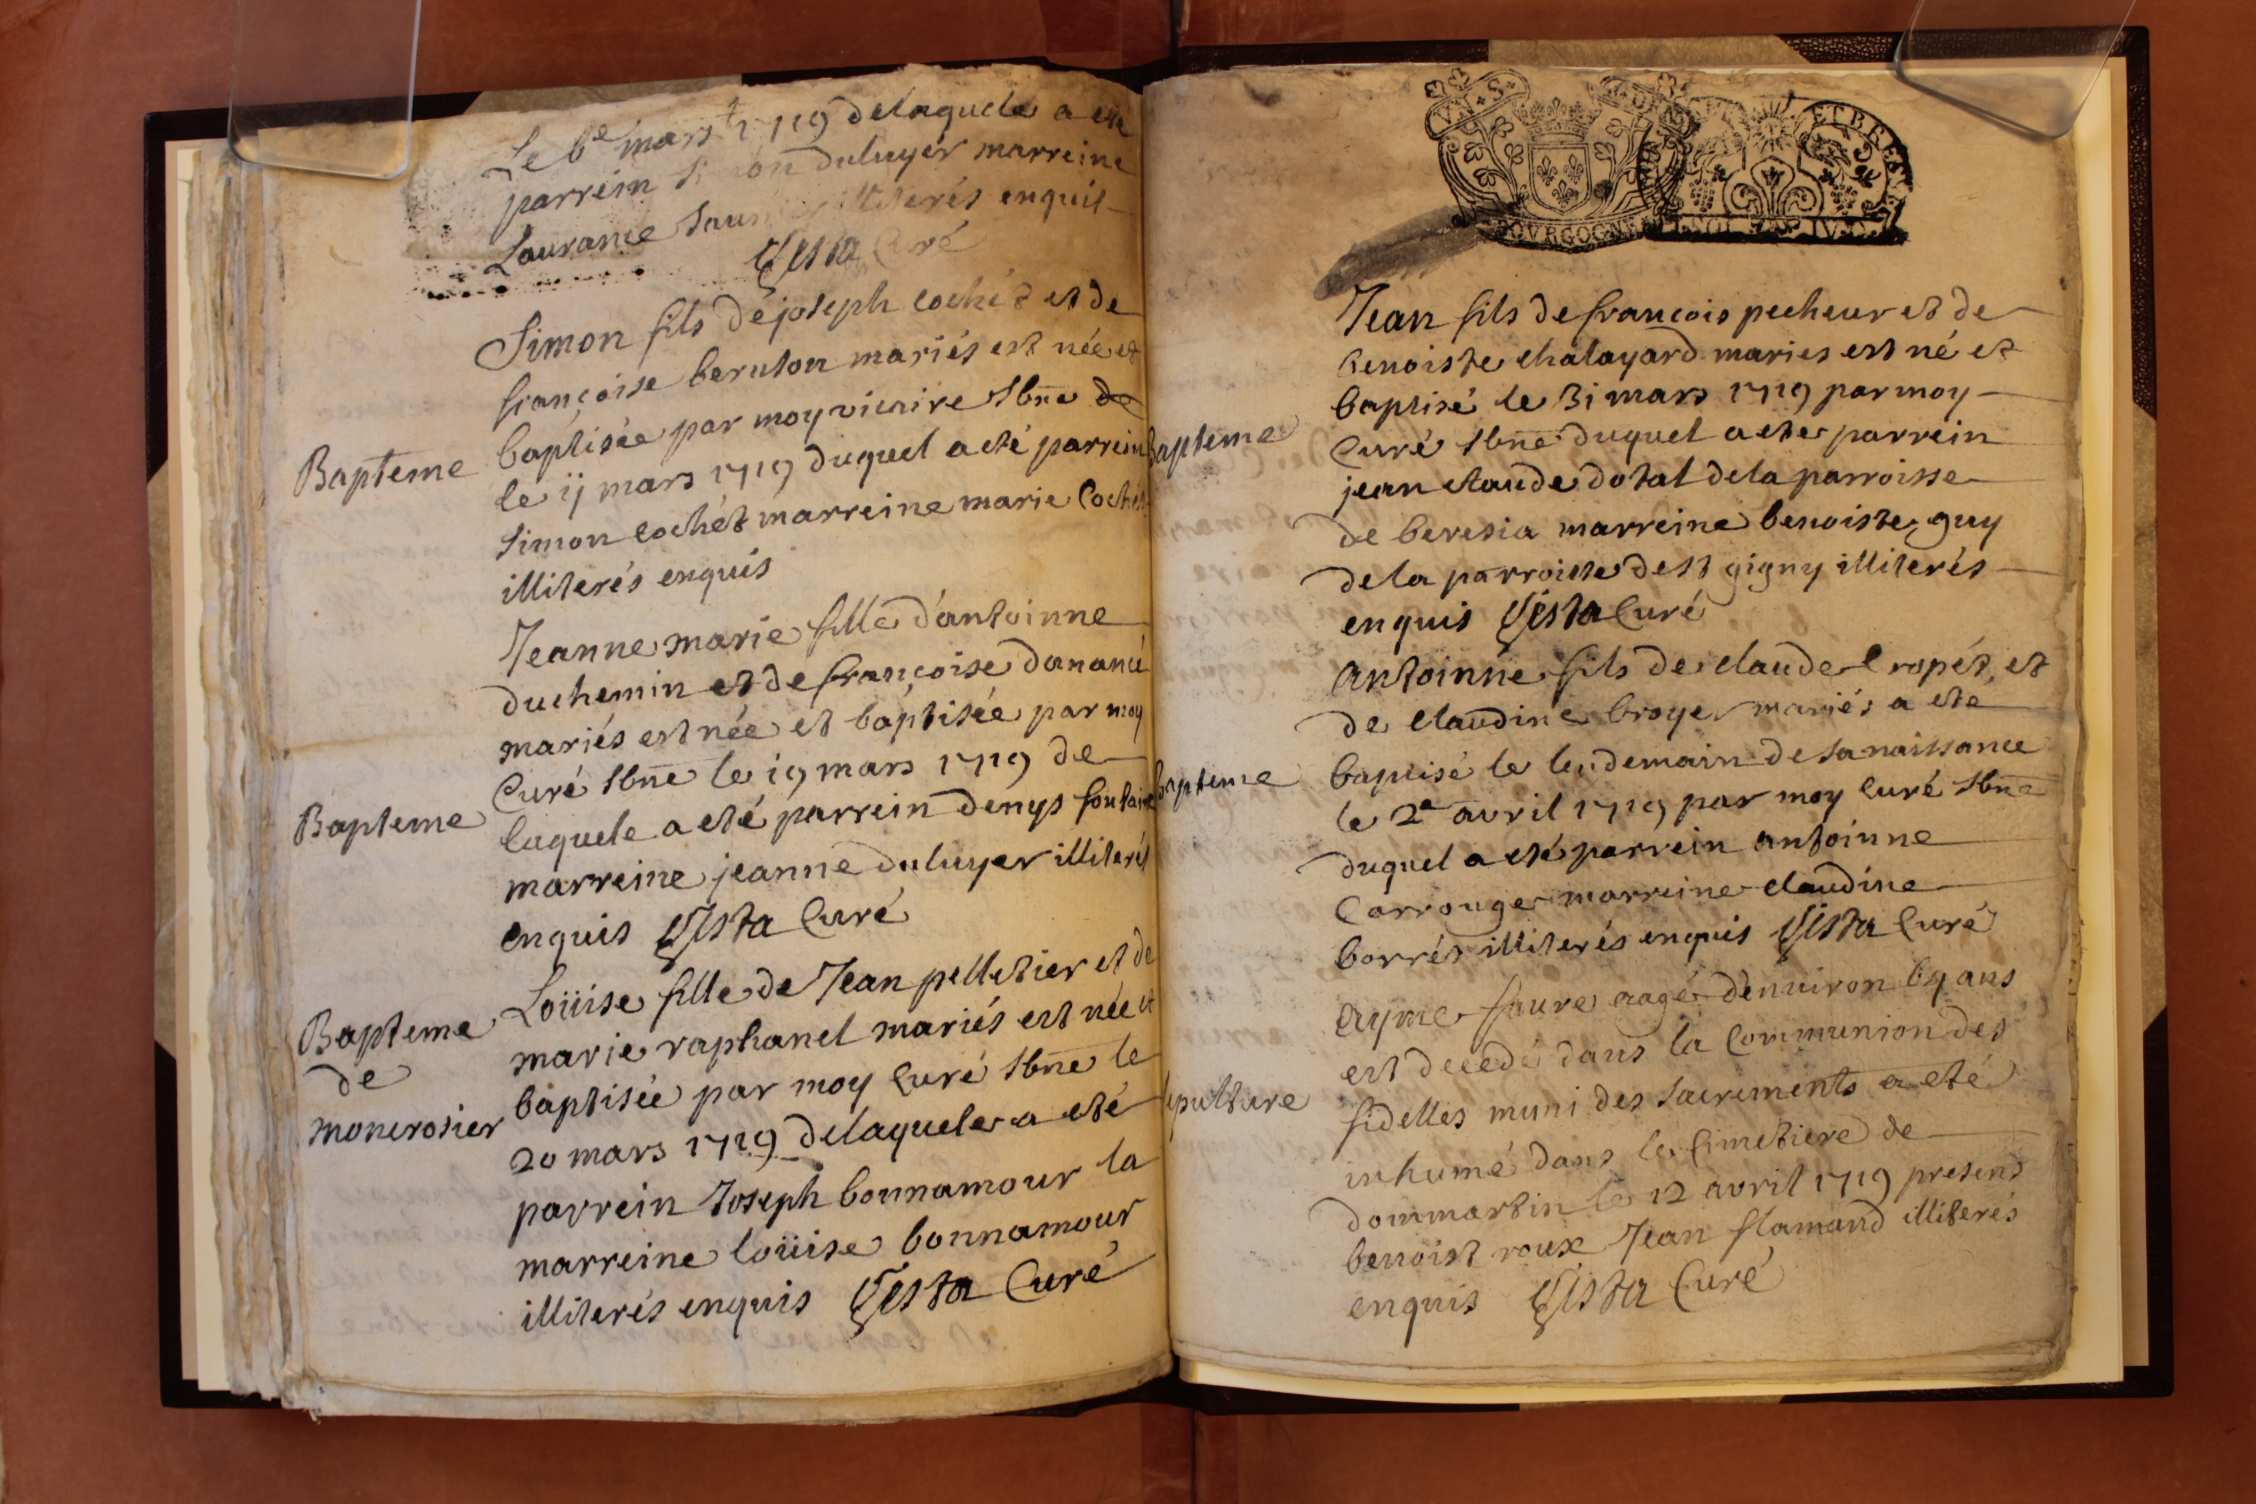 Le 6e mars 1719 delaquele a eté
parrein duluyér marreine
Laurance illiterés enquis
Vista Curé
Bapteme
Simon fils déjoseph cochét et de
françoise beruton mariés est née et
baptisée par moy vicaire sbne de
le ij mars 1719 duquel a eté parrein
simon cochét marreine marie Cochét
illiterés enquis
Bapteme
Jeanne marie fille d'antoinne
duchemin et de françoise danancé
mariés est née et baptisée par moy
Curé sbne le 19 mars 1719 de
laquele a eté parrein denys
marreine jeanne duluyer illiterés
enquis Vista Curé
Bapteme
de
moncrosier
Loüise fille de Jean pelletier et de
marie raphanel mariés est née et
baptisée par moy Curé sbne le
20 mars 1719 delaquele a eté
parrein Joseph bonnamour la
marreine loüise bonnamour
illiterés enquis Vista Curé
BOVRGOGNE ET BRES
Bapteme
Jean fils de francois pecheur et de
benoiste chalayard mariés est né et
baptisé le 31 mars 1719 par moy
Curé sbne duquel a eté parrein
jean claude dotal de la parroisse
de beresia marreine benoiste guy
de la parroisse de st gigny illiterés
enquis Vista Curé
bapteme
antoinne fils de claude ropét et
de claudine broyer mariés a eté
baptisé le lendemain de sa naissance
le 2e avril 1719 par moy Curé sbne
duquel a eté parrein antoinne
Carrouge marreine claudine
borrét illiterés enquis Vista Curé
sepulture
Ayme faure aagé denuiron ans
est decedé dans la Communion des
fidelles muni des sacrements a eté
inhumé dans le Cimetiere de
dommartin le 12 avril 1719 presens
benoist roux Jean flamand illiterés
enquis Vista Curé